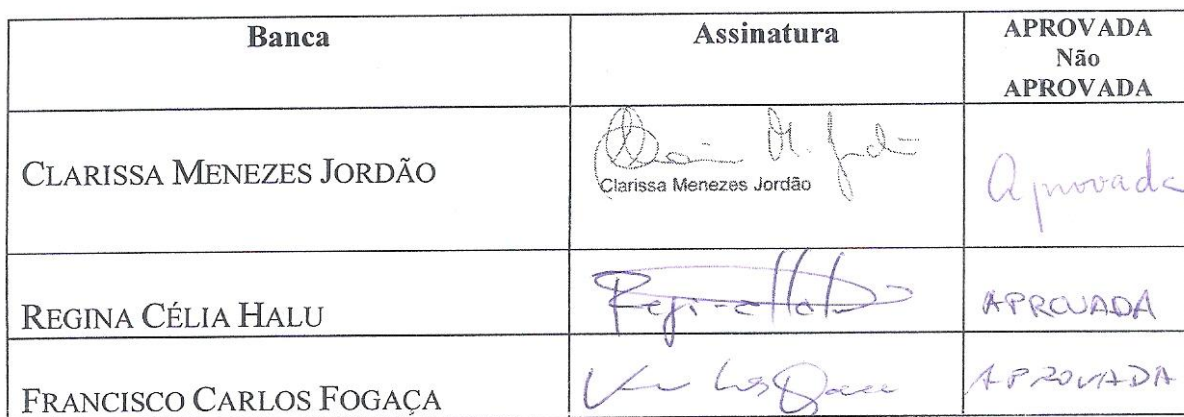 Banca Assinatura APROVADA
Não
APROVADA
CLARISSA MENEZES JORDÃO Clarissa Menezes Jordão Aprovada
REGINA CÉLIA HALU APROVADA
FRANCISCO CARLOS FOGAÇA APROVADA